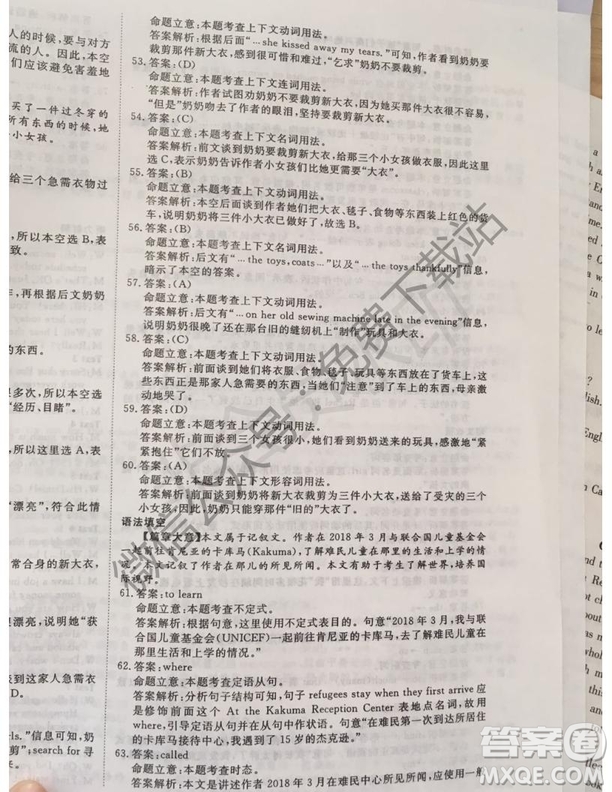 人的时候，要与对方
流的人。因此，本空
们应该避免害羞地
写了一个过冬穿的
所有东西的时候，她
小女孩。
给三个急需衣物过
，所以本空选 B，表
致。
，再根据后文奶奶
的东西。
很多次，所以本空选
“经历、目睹”。
，所以这里选 A，表
“漂亮”，符合此情
常合身的新大衣，
里漂亮，说明她“获
谈到这家人急需衣
D。
rls. ”信息可知，奶
剪”；search for 寻
来
命题立意：本题考查上下文动词用法。
答案解析：根据后面“… she kissed away my tears. ”可知，作者看到奶奶要
裁剪那件新大衣，感到很可惜和难过，“乞求”奶奶不要裁剪。
53. 答案：(D)
命题立意：本题考查上下文连词用法。
答案解析：作者试图劝奶奶不要裁剪新大衣，因为她买那件大衣很不容易，
“但是”奶奶吻去了作者的眼泪，坚持要裁剪大衣。
54. 答案：(C)
命题立意：本题考查上下文名词用法。
答案解析：前文谈到奶奶要裁剪新大衣，给那三个小女孩做衣服，因此这里
选 C，表示奶奶告诉作者小女孩们比她更需要“大衣”。
55. 答案：(B)
命题立意：本题考查上下文动词用法。
答案解析：本空前后谈到作者她们把大衣、毯子、食物等东西装上红色的货
车，说明奶奶将三件小大衣做好了，故选 B。
56. 答案：(B)
命题立意：本题考查上下文动词用法。
答案解析：后文有“… the toys, coats …”以及“… the toys thankfully”信息，
暗示了本空的答案。
57. 答案：(A)
命题立意：本题考查上下文动词用法。
答案解析：后文有“… on her old sewing machine late in the evening”信息，
说明奶奶很晚了还在那台旧的缝纫机上“制作”玩具和大衣。
58. 答案：(C)
命题立意：本题考查上下文动词用法。
答案解析：前面谈到她们将衣服、食物、毯子等东西放在了货车上，这
些东西正是那家人急需的，当她们“注意”到了车上的东西时，母亲
动地哭了。
59. 答案：(D)
命题立意：本题考查上下文动词用法。
答案解析：前面谈到三个女孩很小，她们看到奶奶送来的玩具，感激地“紧
紧抱住”它们不放。
60. 答案：(A)
命题立意：本题考查上下文形容词用法。
答案解析：前面谈到奶奶将新大衣裁剪为三件小大衣，送给了三个
，因此，奶奶只能穿那件“旧的”大衣了。
语法填空
【篇章大意】本文属于记叙文。作者在 2018 年 3 月与联合国儿童基金会
一起前往肯尼亚的卡库马(Kakuma)，了解难民儿童在那里的生活和上学的情
况。本文记叙了作者在那儿的所见所闻。本文有助于考生了解世界，培养国
际视野。
61. 答案：to learn
命题立意：本题考查不定式。
答案解析：根据句意，这里使用不定式表目的。句意“2018 年 3 月，我与联
合国儿童基金会(UNICEF)一起前往肯尼亚的卡库马，去了解难民儿童在
那里的生活和上学的情况。”
62. 答案：where
命题立意：本题考查定语从句。
答案解析：分析句子结构可知，句子 refugees stay when they first arrive 应
是修饰前面这个 At the Kakuma Reception Center 表地点名词，故用
where，引导定语从句并在从句中作状语。句意“在难民第一次到达所居住
的卡库马接待中心，我遇到了 15 岁的杰克逊。”
63. 答案：called
命题立意：本题考查时态。
答案解析：本文是讲述作者 2018 年 3 月在难民中心所见所闻，应使用一般
微信公众号：免费下载站
答案圈
MXQE.COM